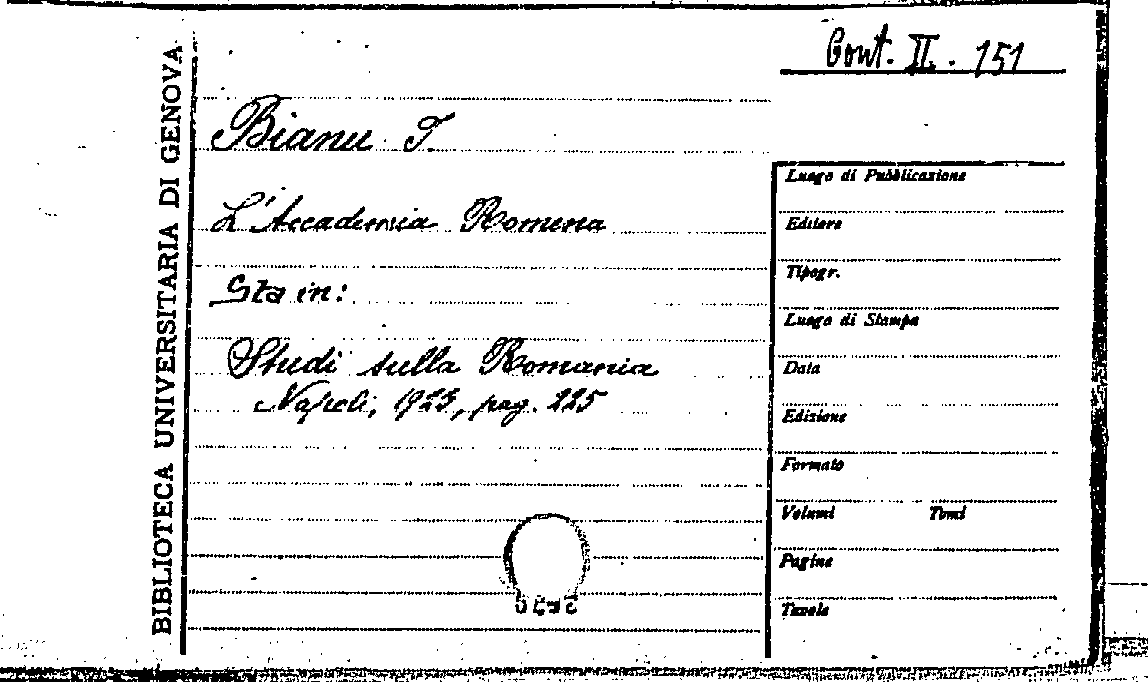 Cont. II. 151
BIBLIOTECA UNIVERSITARIA DI GENOVA
Bianu I.
L'Accademia Romena
Sta in:
Studi sulla Romania
Napoli, 1923, pag. 225
Luogo di Pubblicazione
Editore
Tipogr.
Luogo di Stampa
Data
Edizione
Formato
Volumi Tomi
Pagine
Tavole